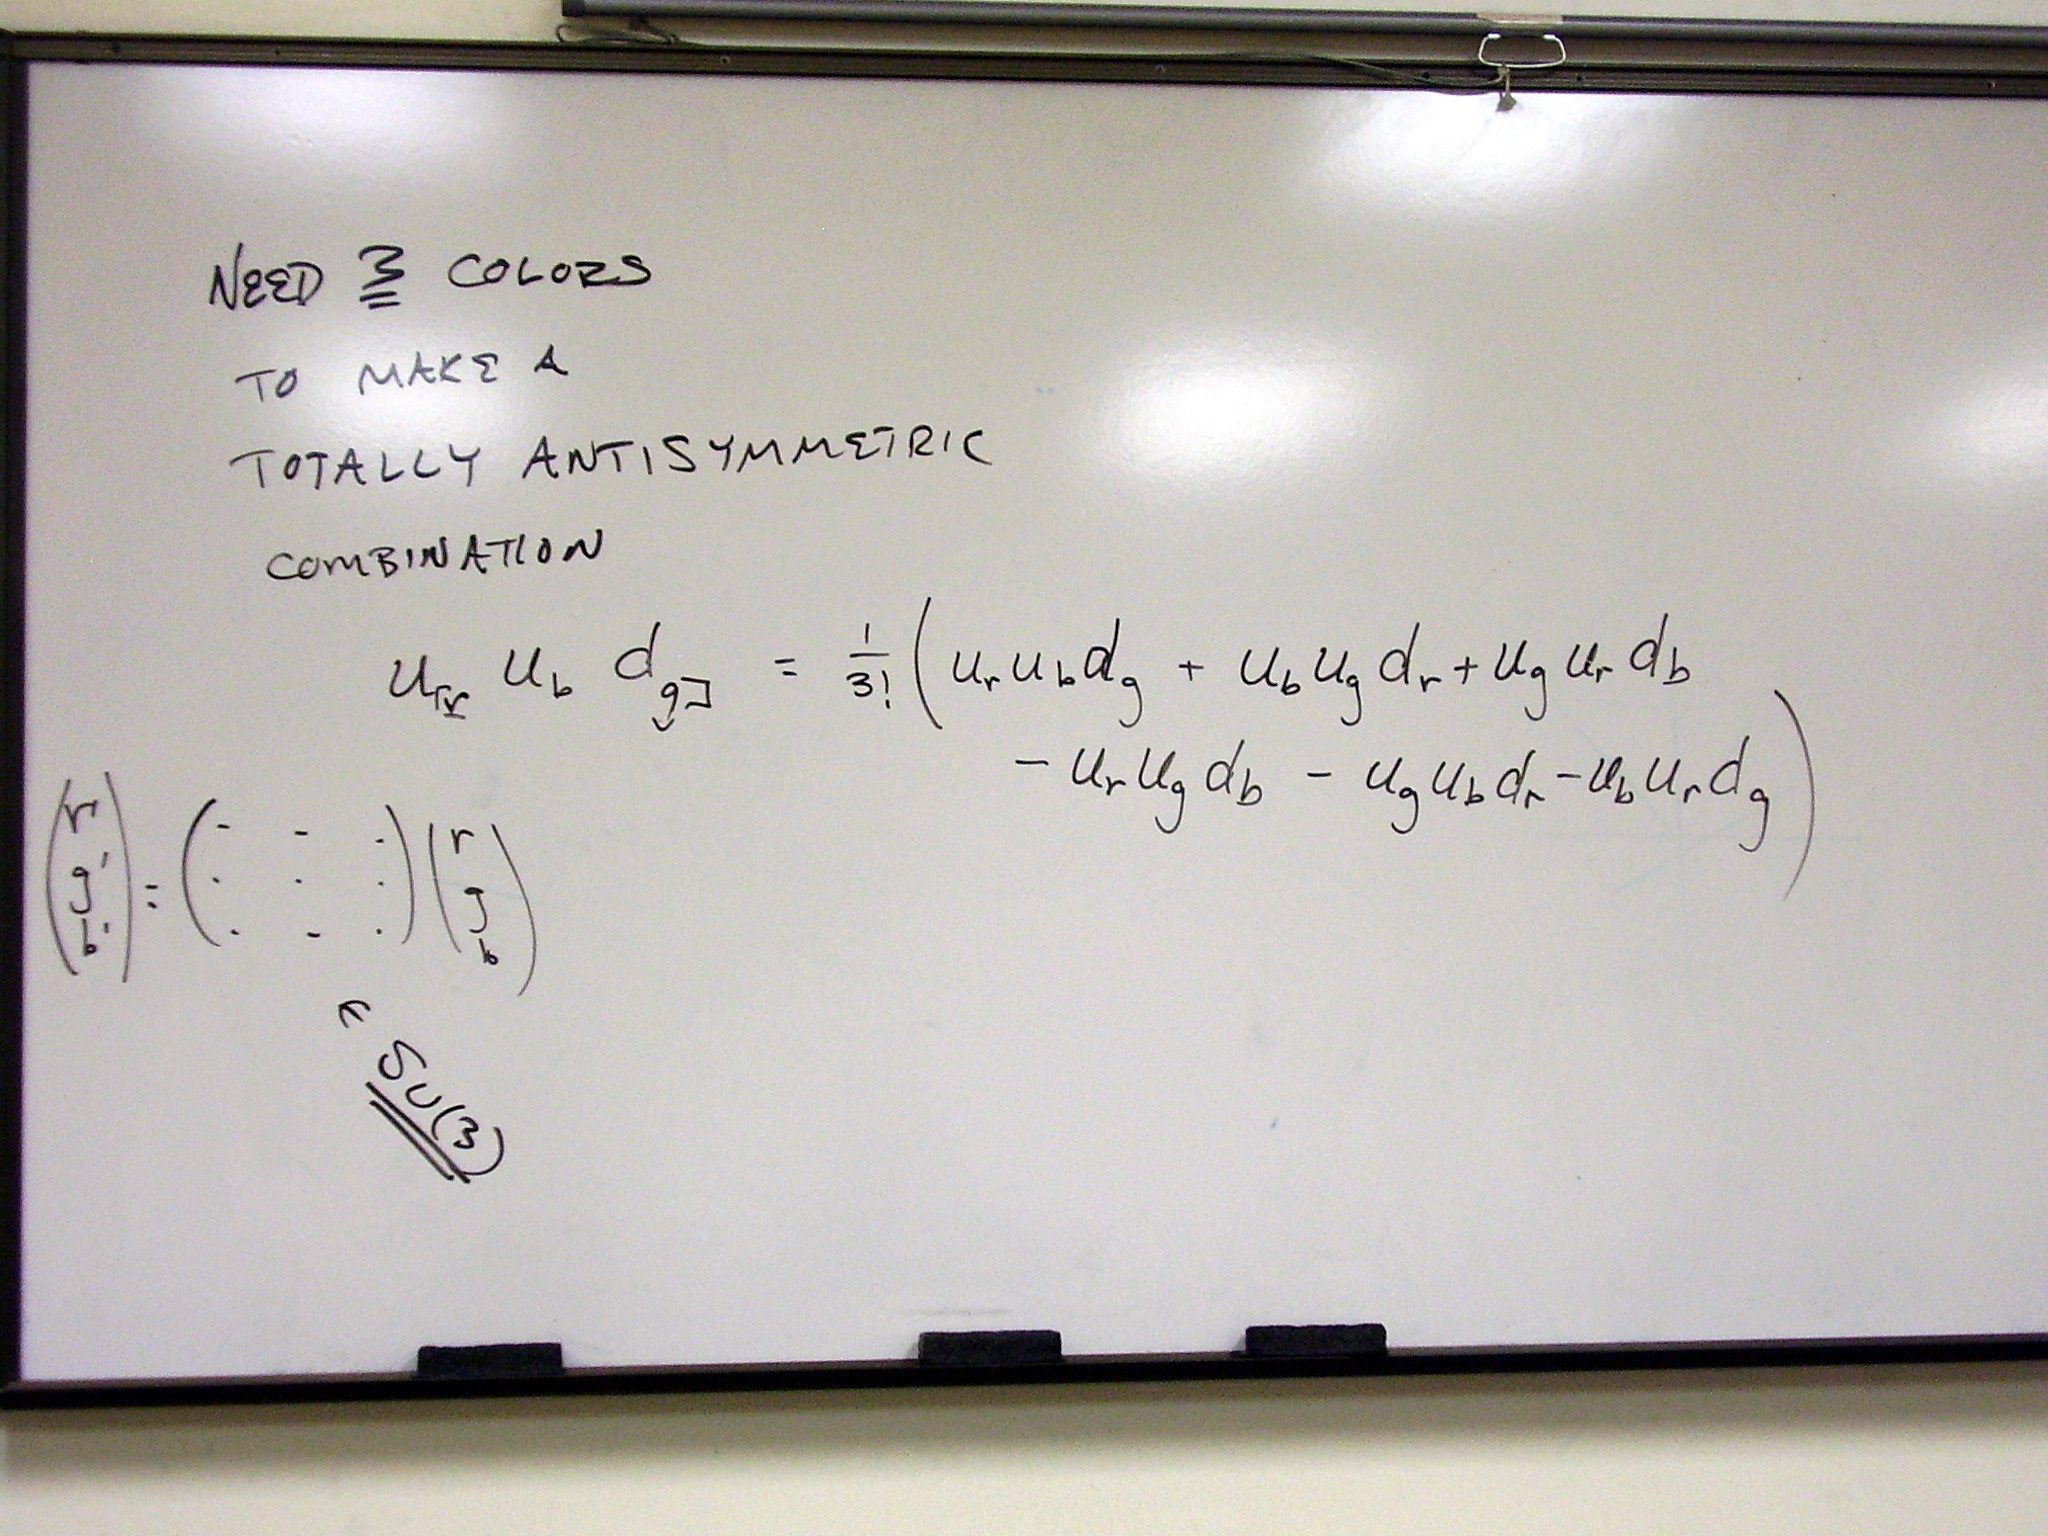 NEED 3 COLORS
TO MAKE A
TOTALLY ANTISYMMETRIC
COMBINATION
u[r ub dg] = 1/3! ( ur ub dg + ub ug dr + ug ur db
- ur ug db - ug ub dr - ub ur dg )
( r' g' b' ) = ( . . . . . . . . . ) ( r g b )
↖ SU(3)